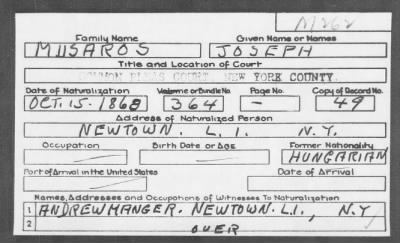 M262
Family Name Given Name or Names
MUSAROS JOSEPH
Title and Location of Court
COMMON PLEAS COURT, NEW YORK COUNTY.
Date of Naturalization Volume or Bundle No. Page No. Copy of Record No.
OCT. 15. 1868 364 - 49
Address of Naturalized Person
NEWTOWN. L. I. N.Y.
Occupation Birth Date or Age Former Nationality
HUNGARIAN
Port of Arrival in the United States Date of Arrival
Names, Addresses and Occupations of Witnesses To Naturalization
1 ANDREW MANGER. NEWTOWN. L.I., N.Y.
2
OVER